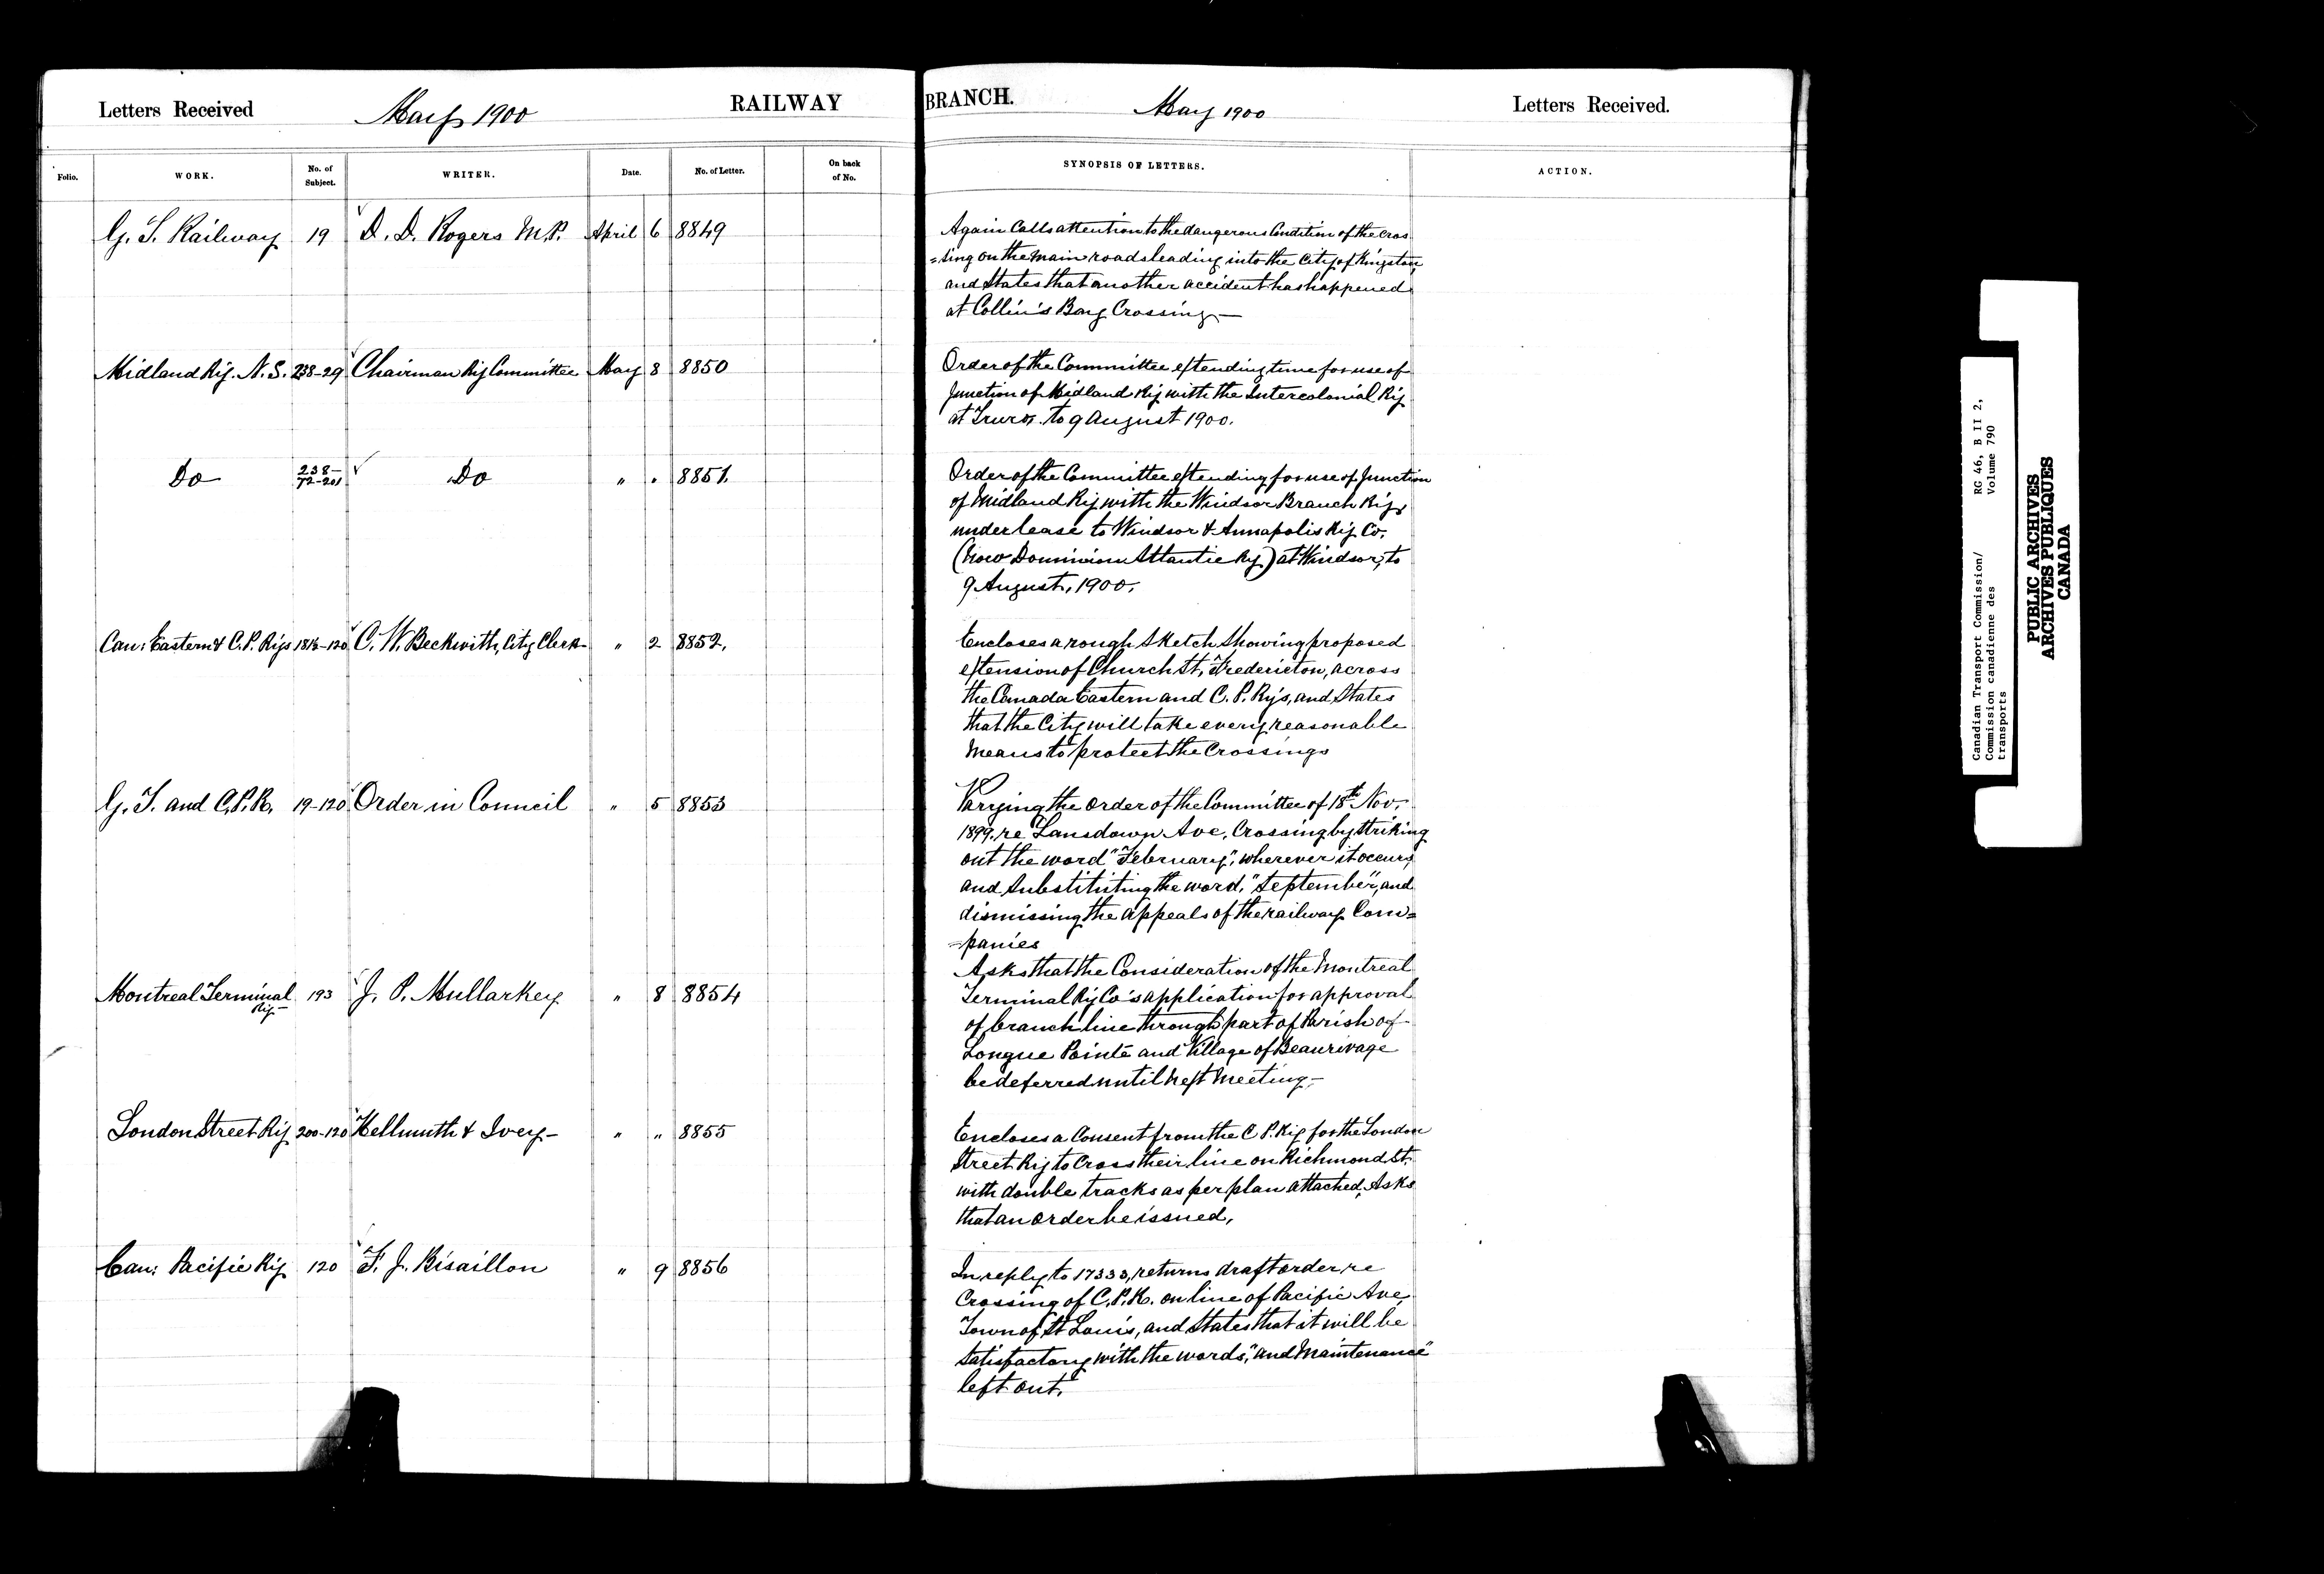 Letters Received May 1900 RAILWAY BRANCH. May 1900 Letters Received.
Folio. WORK. No. of Subject. WRITER. Date. No. of Letter. On back of No. SYNOPSIS OF LETTERS. ACTION.
G. T. Railway 19 D. D. Rogers M.P. April 6 8849
Again Calls attention to the dangerous Condition of the Cros
=sing on the Main roads leading into the City of Kingston,
and States that another accident has happened
at Collin's Bay Crossing —
Midland Ry. N. S. 238-29 Chairman Ry Committee May 8 8850
Order of the Committee extending time for use of
Junction of Midland Ry with the Intercolonial Ry
at Truro. to 9 August 1900.
Do 238- 72-201 Do " " 8851.
Order of the Committee extending for use of Junction
of Midland Ry with the Windsor Branch Ry,
under lease to Windsor & Annapolis Ry. Co.
(now Dominion Atlantic Ry) at Windsor, to
9 August, 1900.
Can: Eastern & C. P. Rys 181½-120 C. W. Beckwith, City Clerk " 2 8852,
Encloses a rough Sketch Showing proposed
extension of Church St, Fredericton, across
the Canada Eastern and C. P. Ry's, and States
that the City will take every reasonable
Means to protect the Crossings
G. T. and C.P.R. 19-120 Order in Council " 5 8853
Varying the Order of the Committee of 18th Nov.
1899. re Lansdown Ave. Crossing by Striking
out the word "February", wherever it occurs,
and Substituting the word, "September", and
dismissing the appeals of the railway Com=
=panies
Montreal Terminal Ry— 193 J. P. Mullarkey " 8 8854
Asks that the Consideration of the Montreal
Terminal Ry Co's application for approval
of branch line through part of Parish of
Longue Pointe and Village of Beaurivage
be deferred until next Meeting —
London Street Ry 200-120 Hellmuth & Ivey — " " 8855
Encloses a Consent from the C P. Ry for the London
Street Ry to Cross their line on Richmond St.
with double tracks as per plan attached, Asks
that an Order be issued,
Can: Pacific Ry 120 F. J. Bisaillon " 9 8856
In reply to 17333, returns draft order, re
Crossing of C.P.R. on line of Pacific Ave
Town of St Louis, and States that it will be
Satisfactory with the words, "and Maintenance"
left out.
Canadian Transport Commission/ RG 46, B II 2,
Commission canadienne des Volume 790
transports
PUBLIC ARCHIVES
ARCHIVES PUBLIQUES
CANADA